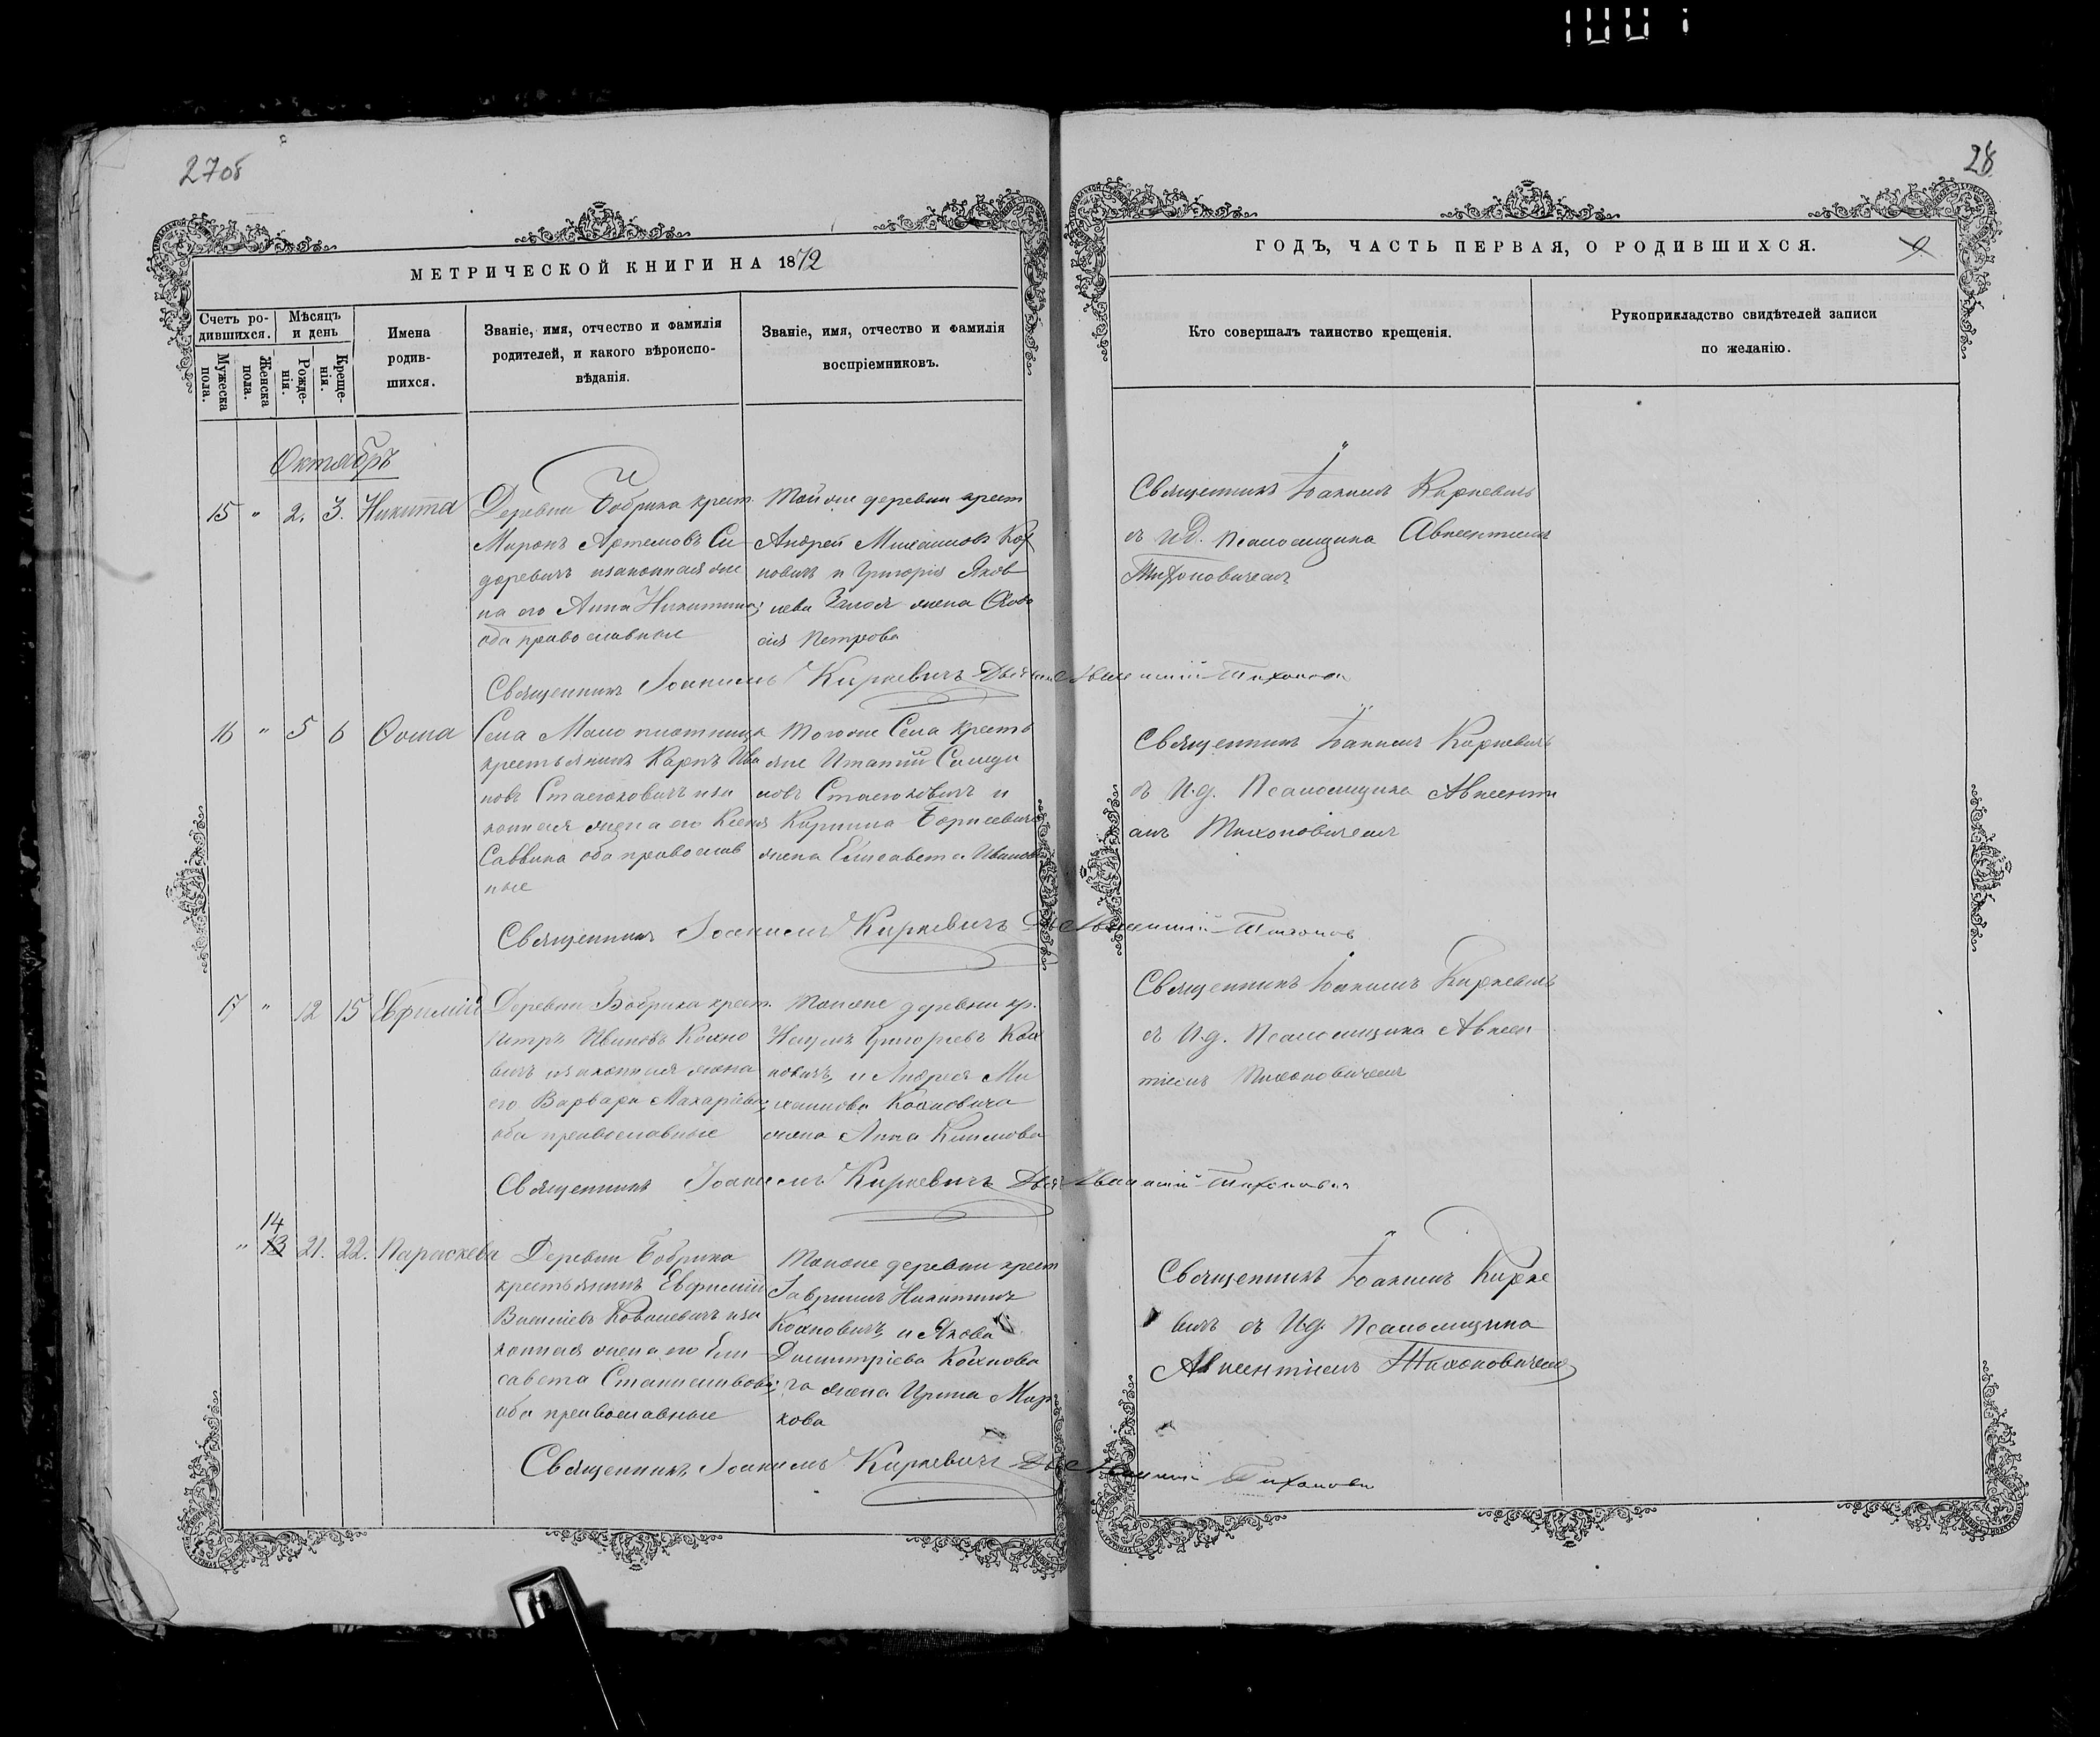 1001
27об
28
МЕТРИЧЕСКОЙ КНИГИ НА 1872
Счетъ ро-
дившихся.
Мѣсяцъ
и день
Мужеска
пола.
Женска
пола.
Рожде-
нія.
Креще-
нія.
Имена
родив-
шихся.
Званіе, имя, отчество и фамилія
родителей, и какого вѣроиспо-
вѣданія.
Званіе, имя, отчество и фамилія
воспріемниковъ.
ГОДЪ, ЧАСТЬ ПЕРВАЯ, О РОДИВШИХСЯ.
9
Кто совершалъ таинство крещенія.
Рукоприкладство свидѣтелей записи
по желанію.
Октябрь
15 " 2. 3. Никита
Деревни Бобрика крест.
Миронъ Артемовъ Си
доревичъ и законная же
на его Анна Никитина;
оба православные
Той же деревни крест
Андрей Михаиловъ Кох
новичъ и Григорія Яков
лева жена
Петрова
Священникъ Іоакимъ Киркевичъ
съ И.Д. Псаломщика Авксентіемъ
Тихоновичемъ
Священникъ Іоакимъ Киркевичъ
16 " 5 6 Ѳома
Села Мало плотница
крестьянинъ Карпъ Ива
новъ Стасюковичъ и за
конная жена его Ксенія
Саввина оба православ
ные
Того же Села кресть
яне Игнатій
Стасюковичъ и
Борисевича
жена Елисавета Иванова
Священникъ Іоакимъ Киркевичъ
съ И.д. Псаломщика Авксенті
емъ Тихоновичемъ
Священникъ Іоакимъ Киркевичъ
17 " 12 15 Евфимій
Деревни Бобрика крест.
Петръ Ивановъ Кохно
вичъ и законная жена
его Варвара Макаріева;
оба православные
Той же деревни кр.
Наумъ Григорьевъ Кох
новичъ, и Андрея Ми
хаилова Кохновича
жена Анна Климова
Священникъ Іоакимъ Киркевичъ
съ И.д. Псаломщика Авксен
тіемъ Тихоновичемъ
Священникъ Іоакимъ Киркевичъ
14
" 13 21. 22. Параскева
Деревни Бобрика
крестьянинъ Евфимій
Василіевъ Ковалевичъ и за
конная жена его Ели
савета Станиславова;
оба православные
Той же деревни крест
Гавріилъ Никитинъ
Кохновичъ, и Якова
Димитріева Кохнови
ча жена Ирина Мар
кова
Священникъ Іоакимъ Кирке
вичъ съ И.д. Псаломщика
Авксентіемъ Тихоновичемъ
Священникъ Іоакимъ Киркевичъ